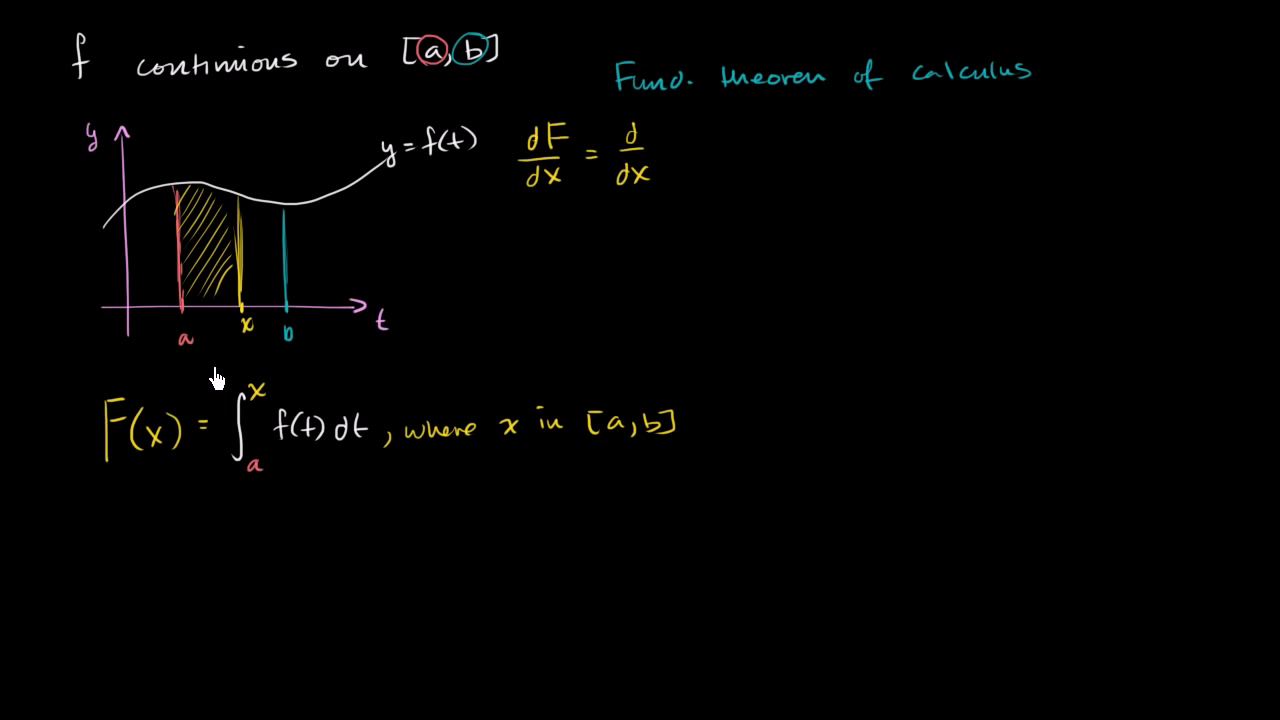 f continuous on [a, b]
Fund. theorem of calculus
y
y = f(t)
dF/dx = d/dx
t
a
x
b
F(x) = ∫ₐˣ f(t) dt, where x in [a, b]